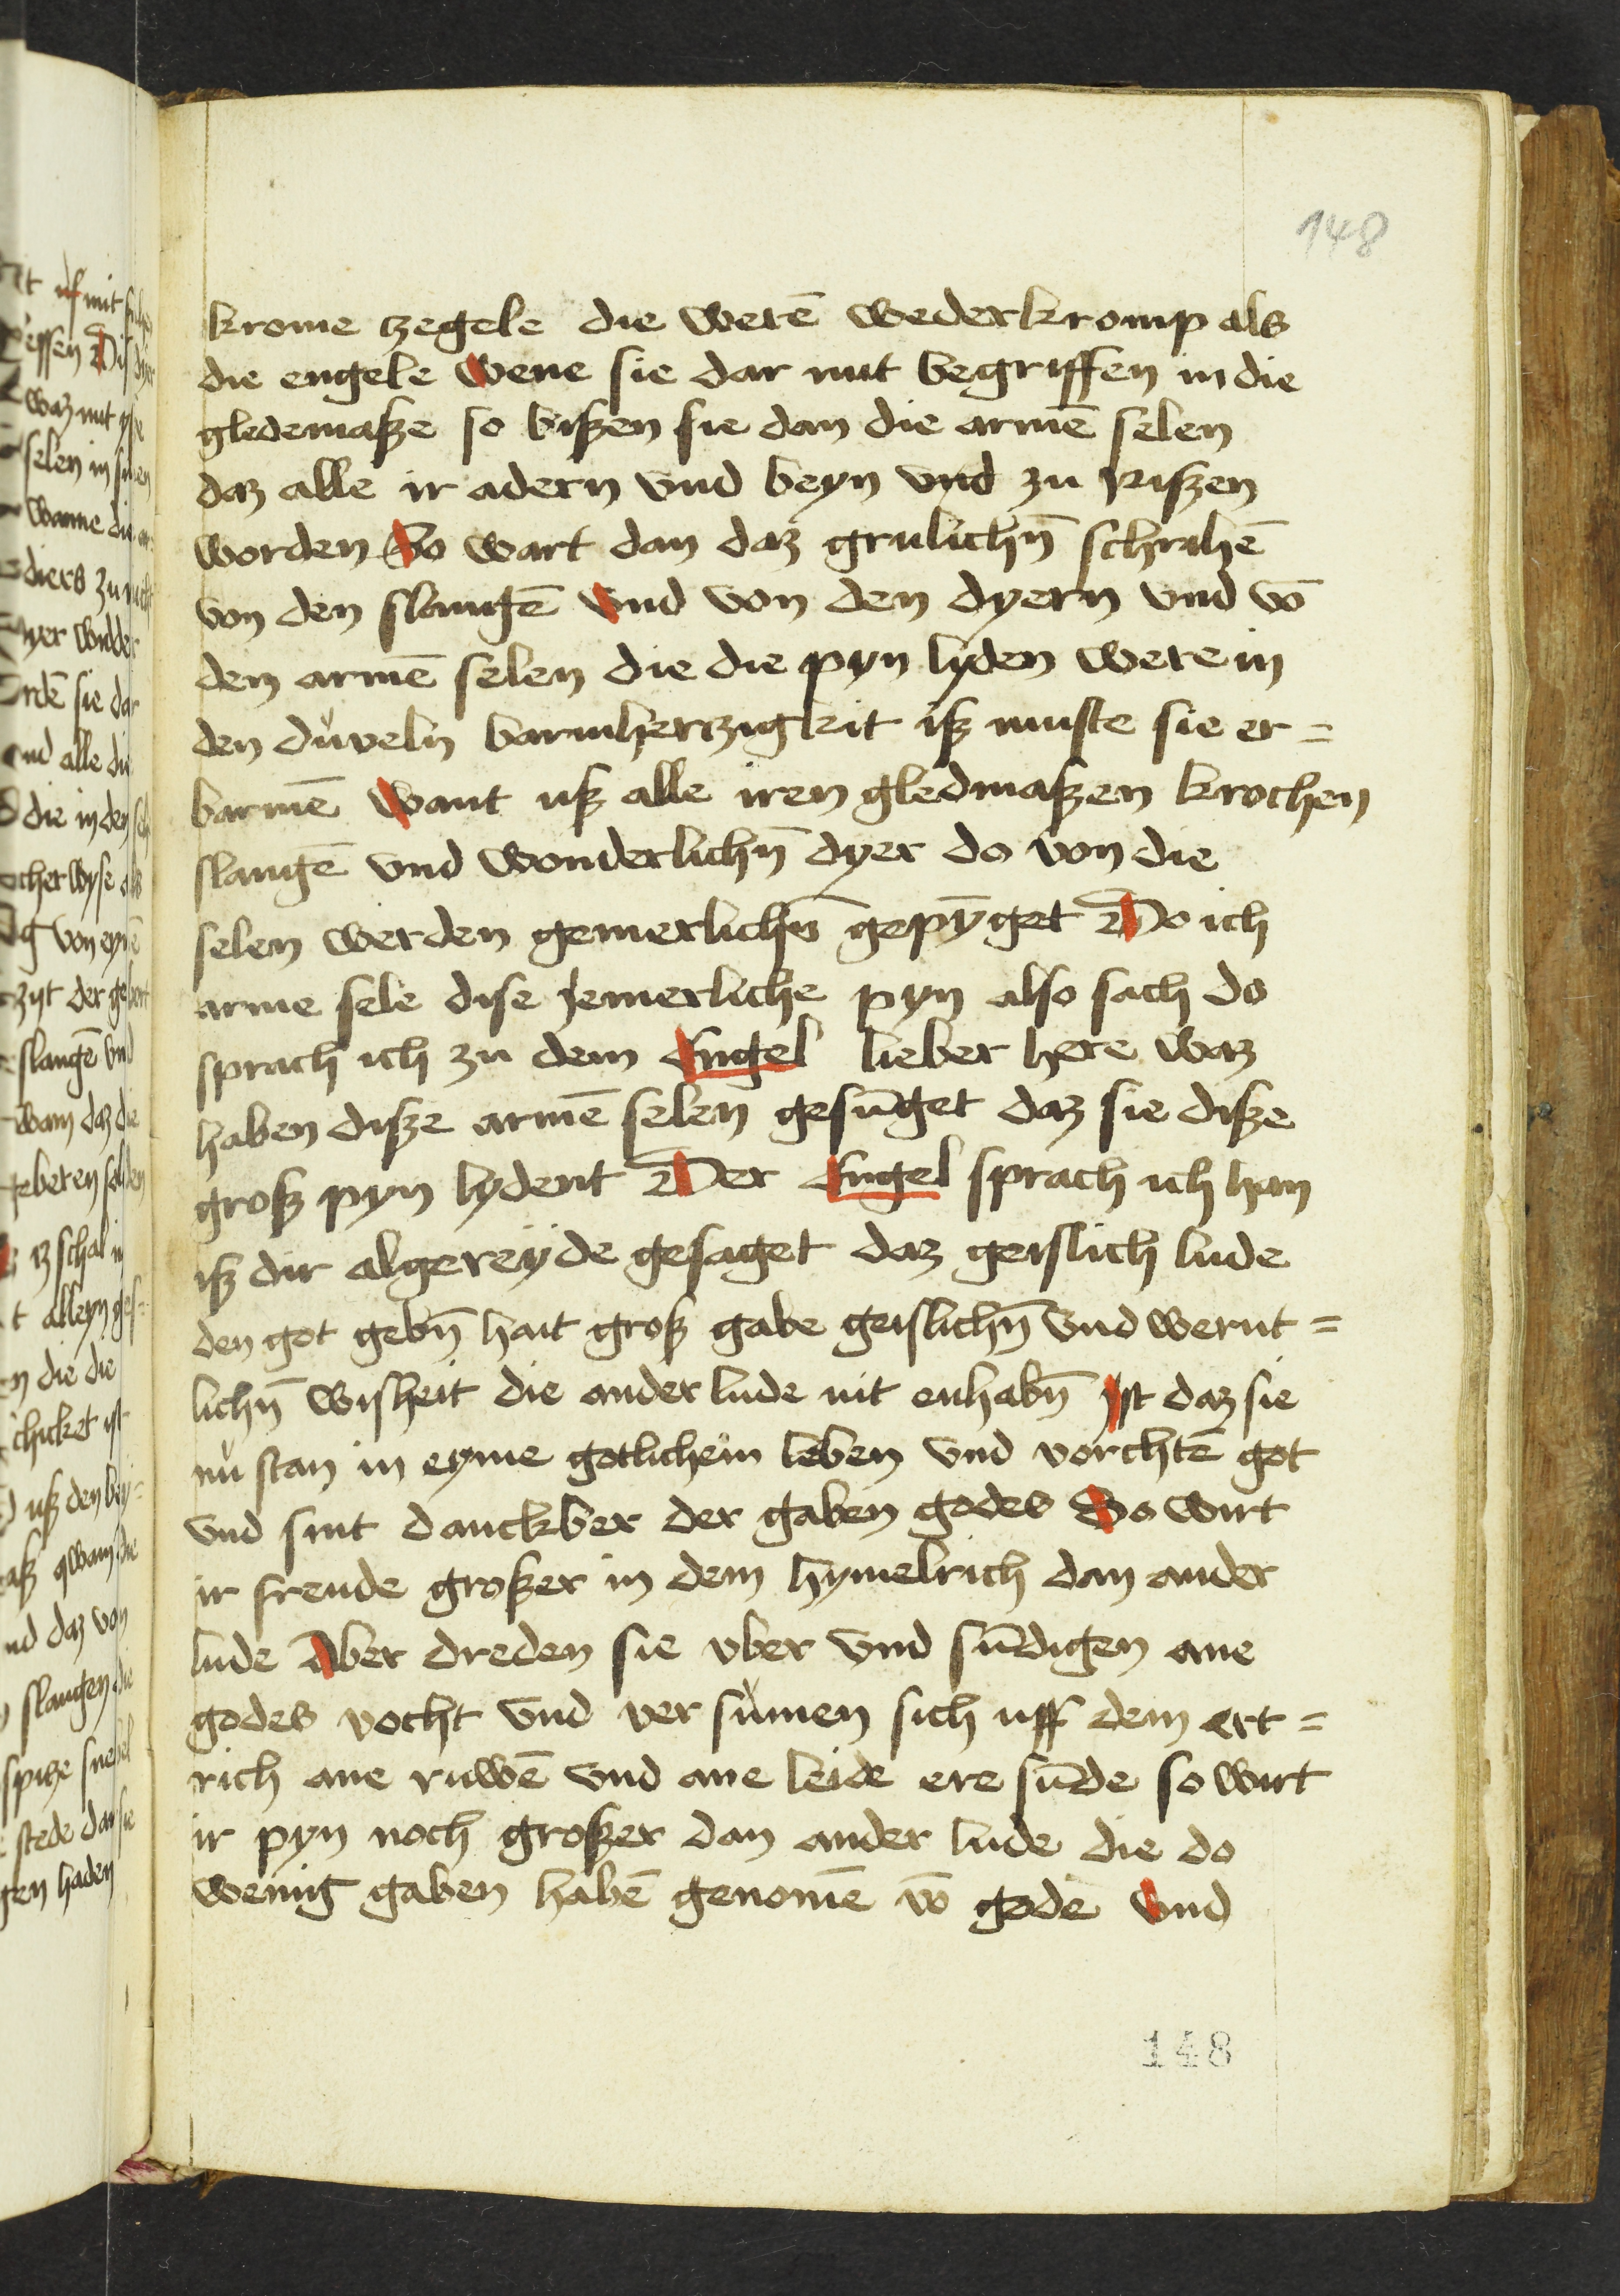 148
krome zegele die werē wederkromp als
die engele Wene sie dar mit begriffen in die
gledemaße so bißen sie dan die armē selen
daz alle ir adern vnd beyn vnd zu rißen
worden So wart dan daz grulichn̄ schrihē
von den slangē Vnd von den dyern vnd vō
den armē selen die die pyn lyden were in
den duveln barmhertzigkit iß muste sie er=
barmē Want uß alle iren gledmaßen krochen
slangē vnd wonderlichn̄ dyer do von die
selen werden gemerlichn̄ gepȳget Do ich
arme sele dise jemerliche pyn also sach do
sprach ich zu dem Engel lieber here waz
haben diße armē selen gesūget daz sie diße
groß pyn lydent Der Engel sprach ich han
iß dir algereyde gesaget daz geislich lude
den got gebn̄ hait groß gabe geislichn̄ vnd wernt=
lichn̄ wisheit die ander lude nit enhabn̄ Ist daz sie
nů stan in eyme gotlichem leben vnd vorchtē got
vnd sint danckber der gaben godes So wirt
ir freude großer in dem hymelrich dan ander
lude Aber dreden sie vber vnd sūdigen ane
godes vocht vnd ver sůmen sich uff dem ert=
rich ane ruwē vnd ane leide ere sūde so wirt
ir pyn noch großer dan ander lude die do
wenig gaben habē genomē vō gode Vnd
148